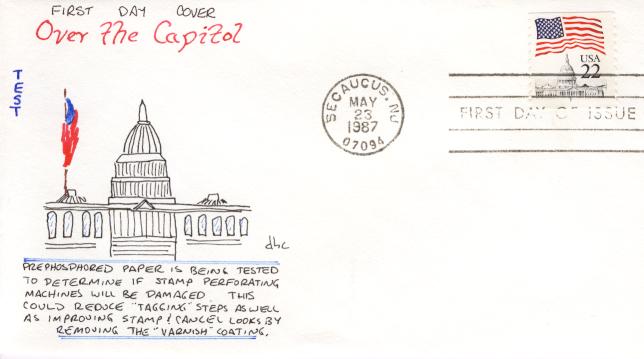 FIRST DAY COVER
Over The Capitol
TEST
SECAUCUS, NJ
MAY
23
1987
07094
USA
22
FIRST DAY OF ISSUE
dhc
PREPHOSPHORED PAPER IS BEING TESTED
TO DETERMINE IF STAMP PERFORATING
MACHINES WILL BE DAMAGED. THIS
COULD REDUCE "TAGGING" STEPS AS WELL
AS IMPROVING STAMP/CANCEL LOOKS BY
REMOVING THE "VARNISH" COATING.